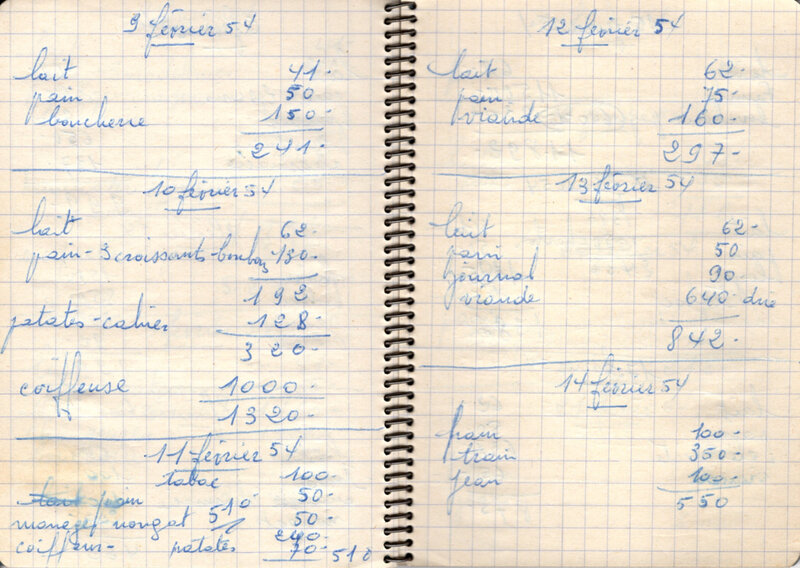 9 février 54
lait 41-
pain 50
boucherie 150-
241-
10 février 54
lait 62-
pain-3 croissants-bonbons 130-
192
patates-cahier 128-
320-
coiffeuse 1000-
1320-
11 février 54
tabac 100-
pain 50-
manèges nougat 510 50-
240-
coiffeur- patates 70- 510
12 février 54
lait 62-
pain 75-
viande 160-
297-
13 février 54
lait 62-
pain 50
journal 90
viande 640-
842-
14 février 54
pain 100-
train 350-
jean 100-
550